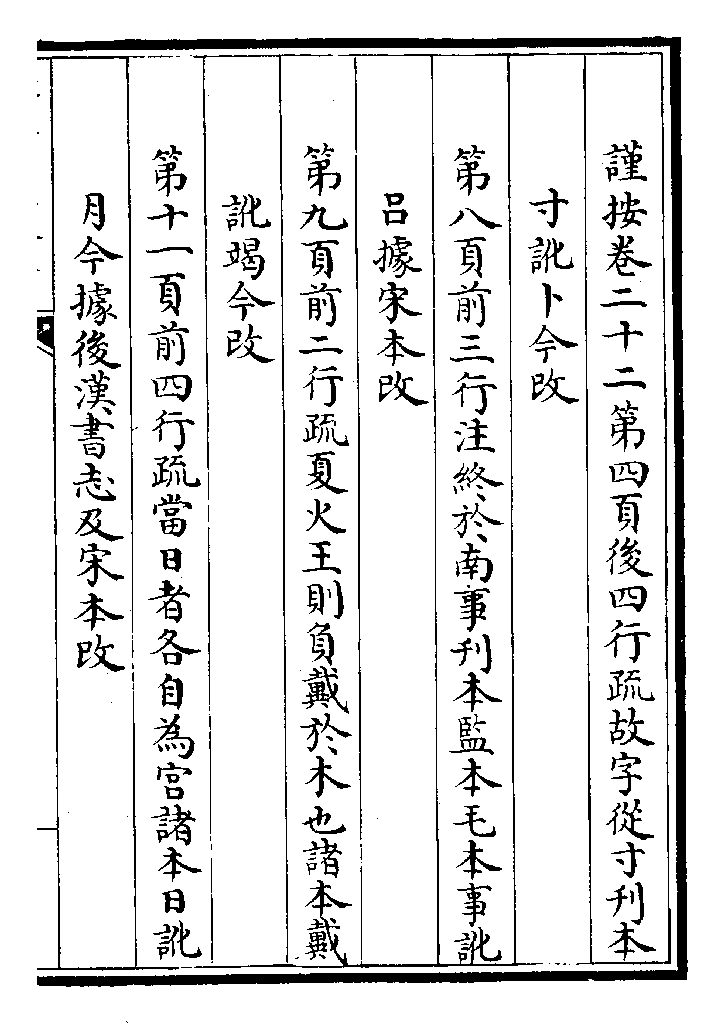 謹按卷二十二第四頁後四行疏故字從寸刋本
寸訛卜今改
第八頁前三行注終於南事刋本監本毛本事訛
吕據宋本改
第九頁前二行疏夏火王則負戴於木也諸本戴
訛竭今改
第十一頁前四行疏當日者各自為宮諸本日訛
月今據後漢書志及宋本改